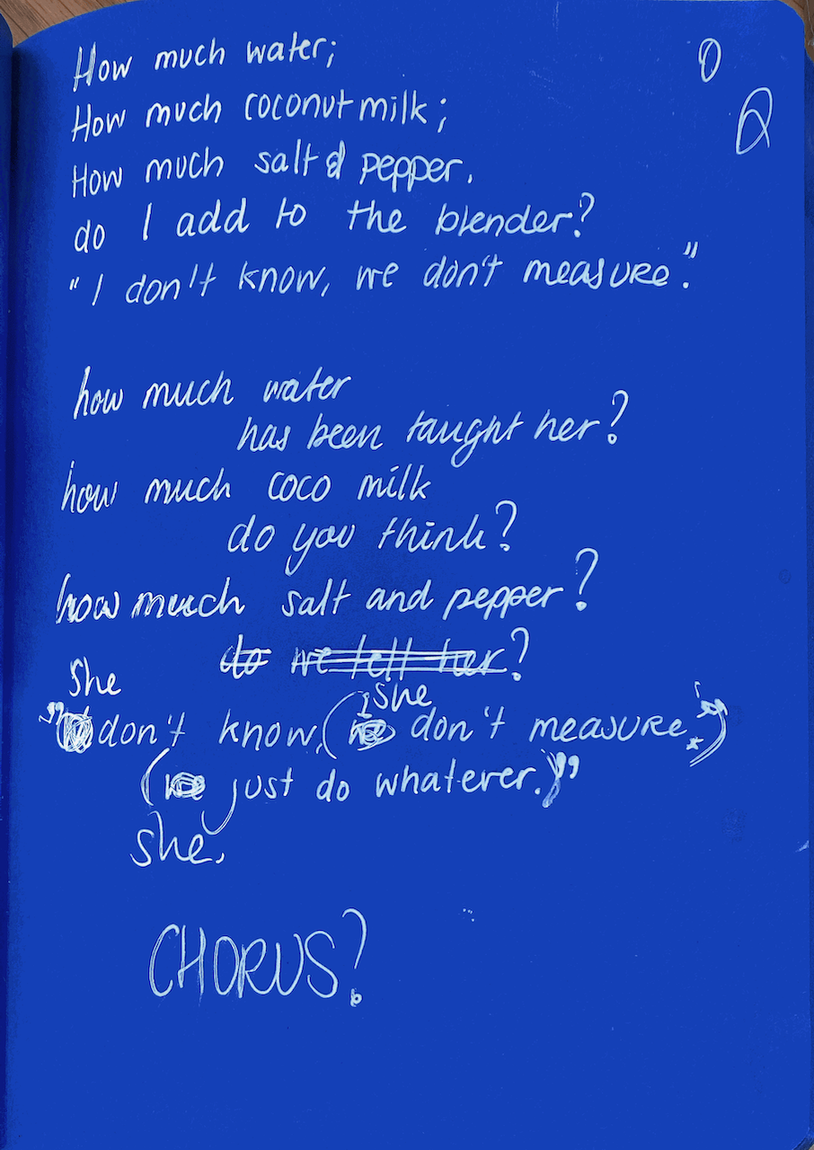 How much water;
How much coconut milk;
How much salt & pepper.
do I add to the blender?
"I don't know, we don't measure."
how much water
has been taught her?
how much coco milk
do you think?
how much salt and pepper?
do we tell her?
She
she
"don't know, (don't measure.)"
(just do whatever.)"
she.
CHORUS?